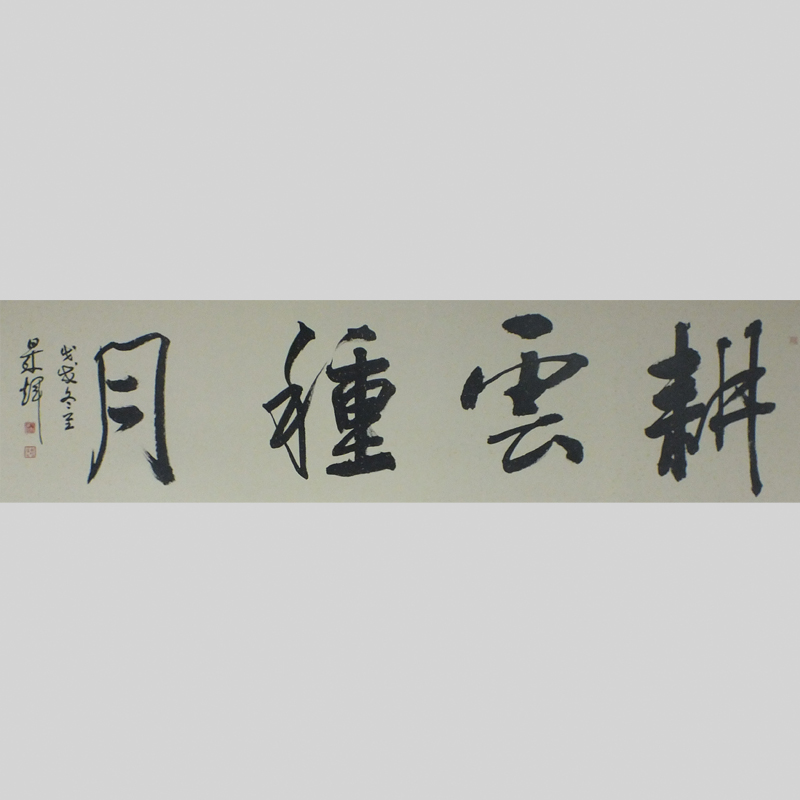 耕雲種月
戊戌冬至